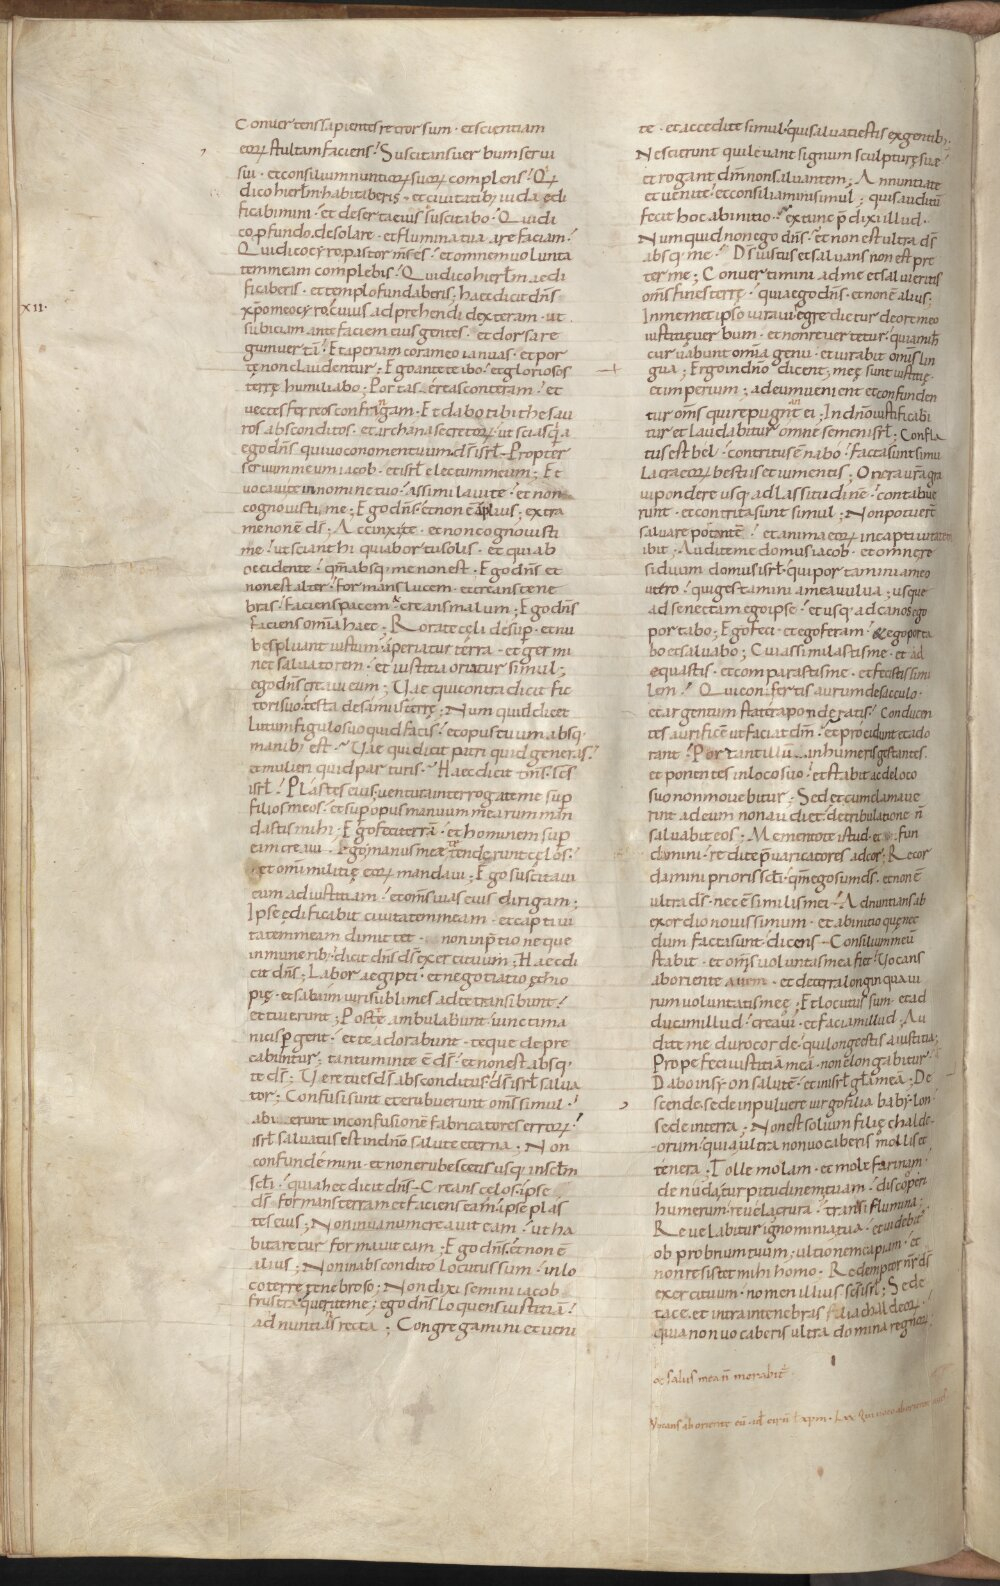 Convertens sapientes retrorsum · et scientiam
eoꝝ stultam faciens · Suscitans verbum servi
sui · et consilium nuntioꝝ suoꝝ complens · Qui
dico hierłm habitaberis · et civitatibꝫ iuda ędi
ficabimini · et deserta eius suscitabo · Qui di
co ꝓfundo · desolare · et flumina tua arefaciam ·
Qui dico cyro · pastor m̅s es · et omnem volunta
tem meam complebis · Qui dico hierłm aedi
ficaberis · et templo fundaberis ; haec dicit dn̅s ·
XII ·
xp̅o meo cyro · cuius adprehendi dexteram · ut
subiciam ante faciem eius gentes · et dorsa re
gum vertā · Et aperiam coram eo ianuas · et por
tę non claudentur ; Ego ante te ibo · et gloriosos
terrę humiliabo ; Portas ęreas conteram · et
vectes ferreos confringam · Et dabo tibi thesau
ros absconditos · et archana secretoꝝ · ut scias q̅a
ego dn̅s qui voco nomen tuum ds̅ isrł · Propter
servum meum iacob · et isrł electum meum ; Et
vocavi te in nomine tuo · assimilavi te · et non
cognovisti me ; Ego dn̅s · et non ē amplius ; extra
me non ē ds̅ ; Accinxi te · et non cognovisti
me · ut sciant hi qui ab ortu solis · et qui ab
occidente · qm̅ absqꝫ me non est · Ego dn̅s et
non est alter · formans lucem · et creans tene
bras · faciens pacem · et creans malum ; Ego dn̅s
faciens om̅ia haec ; Rorate cęli desuꝑ · et nu
bes pluant iustum · aperiatur terra · et germi
net salvatorem · et iustitia oriatur simul ;
ego dn̅s creavi eum ; Uae qui contradicit fic
tori suo · testa de samiis terrę ; Numquid dicet
lutum figulo suo quid facis · et opus tuum absqꝫ
manibꝫ est · Uae qui dicit patri quid generas ·
et mulieri quid parturis · Haec dicit dn̅s · sc̅s
isrł · Plastes eius · ventura interrogate me suꝑ
filios meos · et suꝑ opus manuum mearum man
dastis mihi · Ego feci terrā · et hominem suꝑ
eam creavi · Ego manus meae tenderunt cęlos ·
et omni militię eoꝝ mandavi ; Ego suscitavi
eum ad iustitiam · et om̅s vias eius dirigam ;
Ipse ędificabit civitatem meam · et captivi
tatem meam dimittet · non in p̅tio neque
in muneribꝫ · dicit dn̅s ds̅ exercituum ; Haec di
cit dn̅s ; Labor aegipti · et negotiatio ęthio
pię · et sabaim viri sublimes ad te transibunt ·
et tui erunt ; Post te ambulabunt · vincti ma
nicis ꝑgent · et te adorabunt · teque depre
cabuntur ; tantum in te ē ds̅ · et non est absqꝫ
te ds̅ ; Uere tu es ds̅ absconditus · ds̅ isrł salva
tor ; Confusi sunt et erubuerunt om̅s simul ·
abierunt in confusionē fabricatores erroꝝ ·
isrł salvatus est in dn̅o salute eterna ; Non
confundemini · et non erubescetis usqꝫ in sc̅łm
sc̅łi · quia hec dicit dn̅s · Creans celos · ipse
ds̅ formans terram et faciens eam · ipse plas
tes eius ; Non in vanum creavit eam · ut ha
bitaretur formavit eam ; Ego dn̅s · et non ē
alius ; Non in abscondito locutus sum · in lo
co terrę tenebroso ; Non dixi semini iacob
frustra querite me ; ego dn̅s loquens iustitiā ·
adnuntians recta ; Congregamini et veni
te · et accedite simul · qui salvati estis ex gentibꝫ ·
Nescierunt qui levant signum sculpturę suae
et rogant dm̅ non salvantem ; Annuntiate
et venite · et consiliamini simul ; quis auditū
fecit hoc ab initio · ex tunc p̅dixi illud ·
Numquid non ego dn̅s · et non est ultra ds̅
absqꝫ me · Ds̅ iustus et salvans non est pre
ter me ; Convertimini ad me et salvi eritis
om̅s fines terrę · quia ego dn̅s · et non ē alius ;
In memet ipso iuravi · egredietur de ore meo
iustitię verbum · et non revertetur · quia mihi
curvabunt om̅ia genu · et iurabit omis lin
gua ; Ergo in dn̅o dicent · meę sunt iustitię ·
et imperium ; ad eum venient et confunden
tur om̅s qui repugnant ei ; In dn̅o iustificabi
tur et laudabitur omne semen isrł ; Confla
tus est bel · contritus ē nabo · Facta sunt simu
lacra eoꝝ bestiis et iumentis ; Onera vr̅a gra
vi pondere usqꝫ ad lassitudinē · contabue
runt · et contrita sunt simul ; Non potuer̅t
salvare portantē · et anima eoꝝ in captivitatem
ibit ; Audite me domus iacob · et omne re
siduum domus isrł · qui portamini a meo
utero · qui gestamini a mea vulva ; usque
ad senectam ego ipse · et usqꝫ ad canos ego
portabo ; Ego feci · et ego feram · & ego porta
bo et salvabo ; Cui assimilastis me · et ad
equastis · et comparastis me · et fecistis simi
lem · Qui confertis aurum de sacculo ·
et argentum statera ponderatis · Conducen
tes aurificē ut faciat dm̅ · et procidunt et ado
rant · Portant illū in humeris gestantes ·
et ponentes in loco suo · et stabit ac de loco
suo non movebitur · Sed et cum clamave
rint ad eum non audiet · de tribulatione n̅
salvabit eos ; Mementote istud · et fun
damini · redite p̅varicatores ad cor ; Recor
damini prioris sc̅łi · qm̅ ego sum ds̅ · et non ē
ultra ds̅ · nec ē similis mei · Adnuntians ab
exordio novissimum · et ab initio quę nec
dum facta sunt · dicens · Consilium meū
stabit · et om̅s voluntas mea fiet · Uocans
ab oriente avem · et de terra longinqua vi
rum voluntatis meę · Et locutus sum · et ad
ducam illud · creavi · et faciam illud ; Au
dite me duro corde · qui longe estis a iustitia ;
Prope feci iustitiā meā · non elongabitur ·
Dabo in syon salutē · et in isrł gl̅am meā ; De
scende · sede in pulvere virgo filia babylon ·
sede in terra ; Non est solium filię chalde
orum · quia ultra non vocaberis mollis et
tenera · Tolle molam · et mole farinam ·
denuda turpitudinem tuam · discoperi
humerum · revela crura · transi flumina ;
Revelabitur ignominia tua · et videbit̅
obprobrium tuum ; ultionem capiam · et
non resistet mihi homo · Redemptor nr̅ ds̅
exercituum · nomen illius · sc̅s isrł ; Sede
tace · et intra in tenebras filia chaldeoꝝ ·
quia non vocaberis ultra domina regnoꝝ ·
& salus mea n̅ morabit̅ ·
Vocans ab oriente